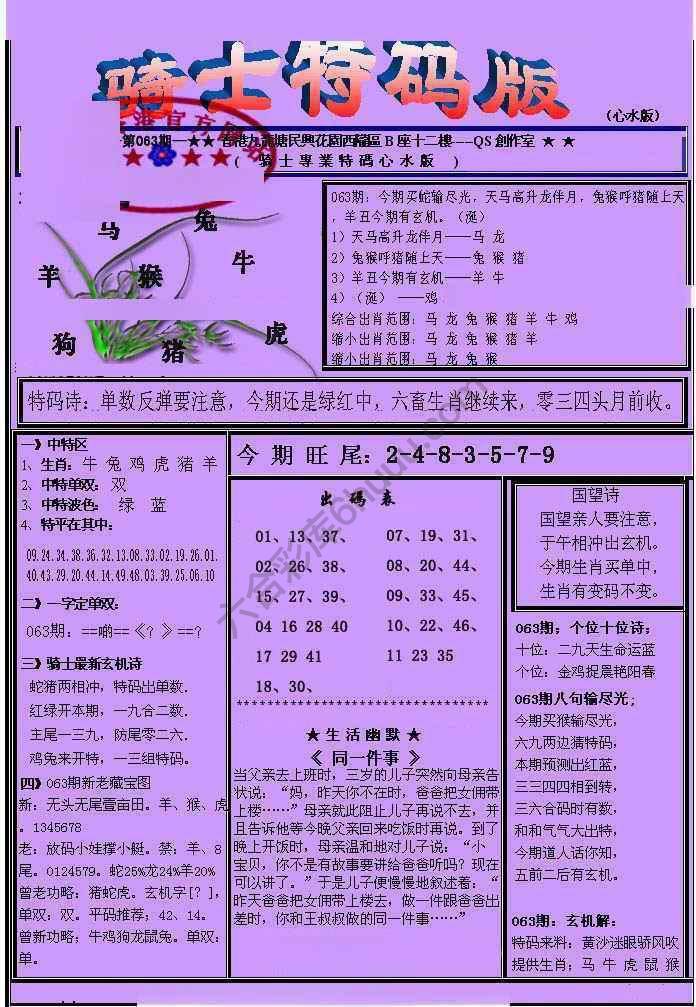 骑士特码版
（心水版）
第063期—★★ 香港九龍塘民興花園西福區B座十二樓----QS創作室 ★ ★
( 騎士專業特碼心水版 )
马
兔
羊
猴
牛
狗
猪
虎
063期：今期买蛇输尽光，天马高升龙伴月，兔猴呼猪随上天
，羊丑今期有玄机。（涎）
1）天马高升龙伴月——马 龙
2）兔猴呼猪随上天——兔 猴 猪
3）羊丑今期有玄机——羊 牛
4）（涎） ——鸡
综合出肖范围：马 龙 兔 猴 猪 羊 牛 鸡
缩小出肖范围：马 龙 兔 猴 猪 羊
缩小出肖范围：马 龙 兔 猴
特码诗：单数反弹要注意，今期还是绿红中，六畜生肖继续来，零三四头月前收。
一》中特区
1、生肖：牛 兔 鸡 虎 猪 羊
2、中特单双：双
3、中特波色： 绿 蓝
4、特平在其中：
09.24.34.38.36.32.13.08.33.02.19.26.01.
40.43.29.20.44.14.49.48.03.39.25.06.10
二》一字定单双：
063期：==啲==《？》==?
三》骑士最新玄机诗
蛇猪两相冲，特码出单数.
红绿开本期，一九合二数.
主尾一三九，防尾零二六.
鸡兔来开特，一三组特码.
四》063期新老藏宝图
新：无头无尾壹亩田。羊、猴、虎
。1345678
老：放码小娃撑小艇。禁：羊、8
尾。0124579。蛇25%龙24%羊20%
曾老功略：猪蛇虎。玄机字[？]，
单双：双。平码推荐；42、14。
曾新功略；牛鸡狗龙鼠兔。单双：
单。
今 期 旺 尾：2-4-8-3-5-7-9
出码表
01、13、37、 07、19、31、
02、26、38、 08、20、44、
15、27、39、 09、33、45、
04 16 28 40 10、22、46、
17 29 41 11 23 35
18、30、
****************************************
★ 生 活 幽 默 ★
《 同一件事 》
当父亲去上班时，三岁的儿子突然向母亲告
状说：“妈，昨天你不在时，爸爸把女佣带
上楼……”母亲就此阻止儿子再说不去，并
且告诉他等今晚父亲回来吃饭时再说。到了
晚上开饭时，母亲温和地对儿子说：“小
宝贝，你不是有故事要讲给爸爸听吗？现在
可以讲了。”于是儿子便慢慢地叙述着：“
昨天爸爸把女佣带上楼去，做一件跟爸爸出
差时，你和王叔叔做的同一件事……”
国望诗
国望亲人要注意，
于午相冲出玄机。
今期生肖买单中，
生肖有变码不变。
063期；个位十位诗；
十位：二九天生命运蓝
个位：金鸡捉晨艳阳春
063期八句输尽光；
今期买猴输尽光，
六九两边猜特码，
本期预测出红蓝，
三三四四相到转，
三六合码时有数，
和和气气大出特，
今期道人话你知，
五前二后有玄机。
063期：玄机解：
特码来料：黄沙迷眼骄风吹
提供生肖；马 牛 虎 鼠 猴
六合彩库6huuu.com